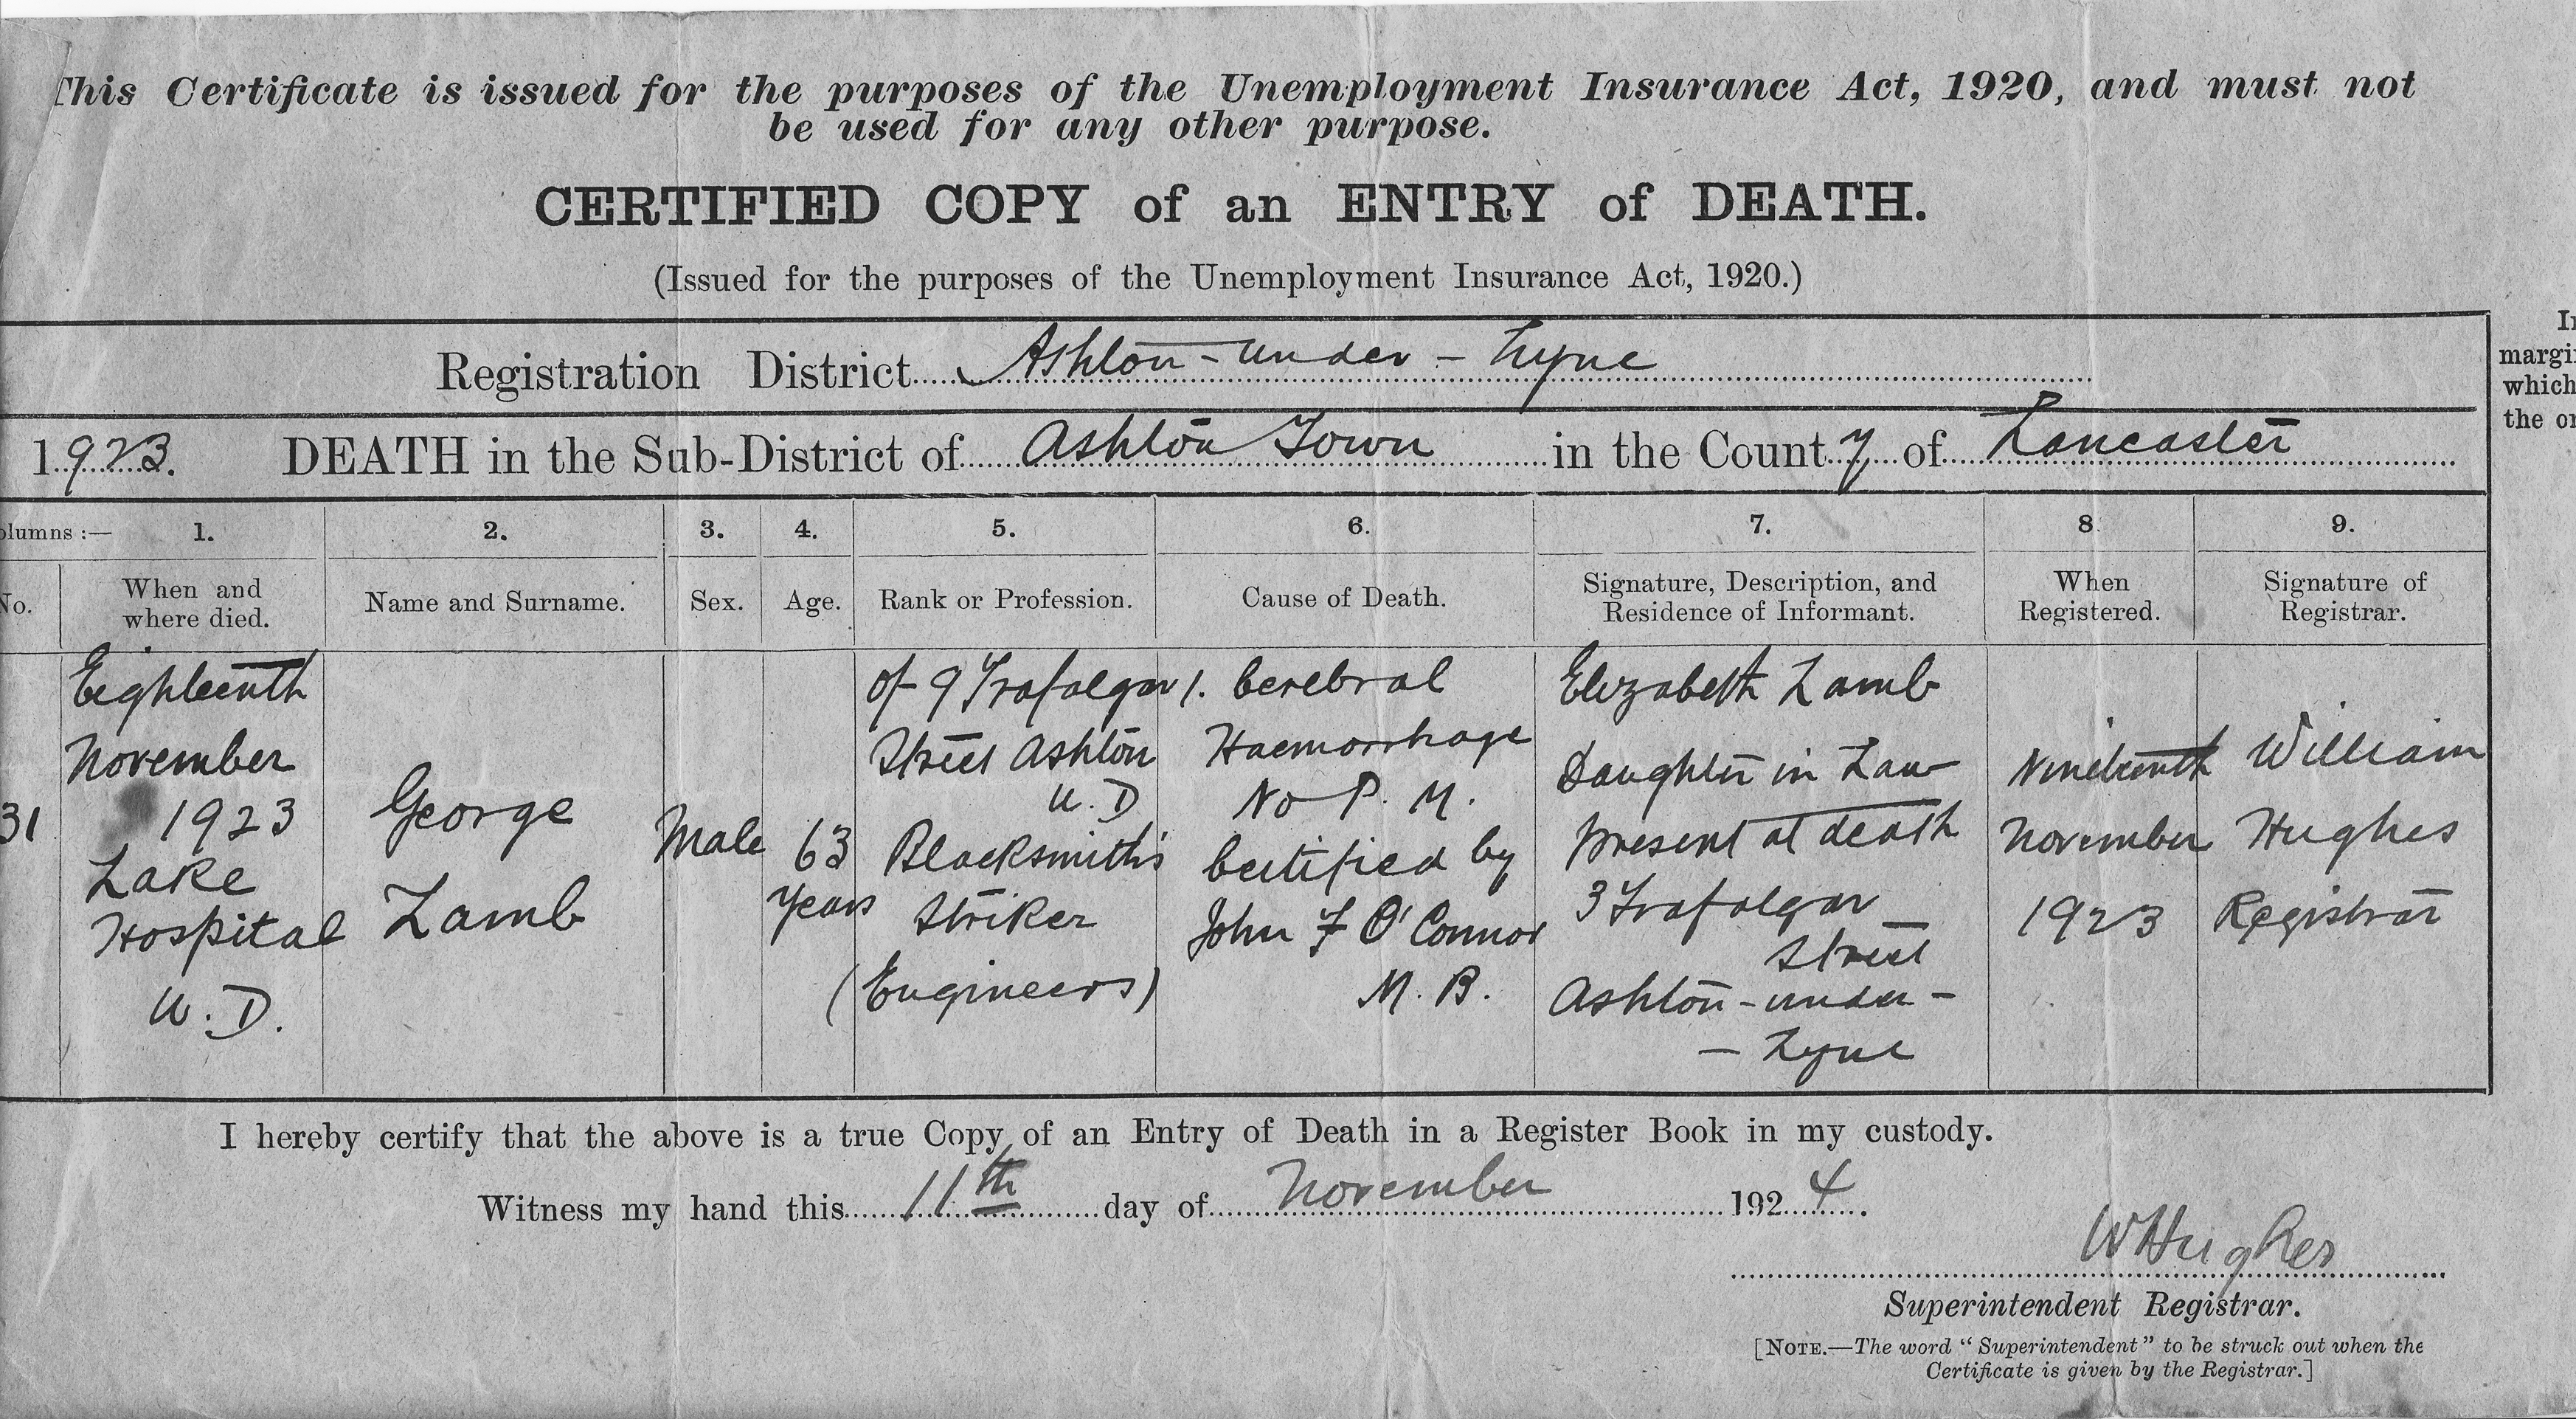 This Certificate is issued for the purposes of the Unemployment Insurance Act, 1920, and must not
be used for any other purpose.
CERTIFIED COPY of an ENTRY of DEATH.
(Issued for the purposes of the Unemployment Insurance Act, 1920.)
Registration District Ashton-under-Lyne
1923. DEATH in the Sub-District of Ashton Town in the County of Lancaster
olumns :— 1. 2. 3. 4. 5. 6. 7. 8. 9.
No.
When and
where died.
Name and Surname.
Sex.
Age.
Rank or Profession.
Cause of Death.
Signature, Description, and
Residence of Informant.
When
Registered.
Signature of
Registrar.
31
Eighteenth
November
1923
Lake
Hospital
U.D.
George
Lamb
Male
63
years
of 9 Trafalgar
Street Ashton
U.D
Blacksmith's
Striker
(Engineers)
1. Cerebral
Haemorrhage
No P.M.
Certified by
John F O'Connor
M.B.
Elizabeth Lamb
Daughter in Law
Present at death
3 Trafalgar
Street
Ashton-under-
- Lyne
Nineteenth
November
1923
William
Hughes
Registrar
In
margi
which
the or
I hereby certify that the above is a true Copy of an Entry of Death in a Register Book in my custody.
Witness my hand this 11th day of November 1924.
W Hughes
Superintendent Registrar.
[NOTE.—The word "Superintendent" to be struck out when the
Certificate is given by the Registrar.]